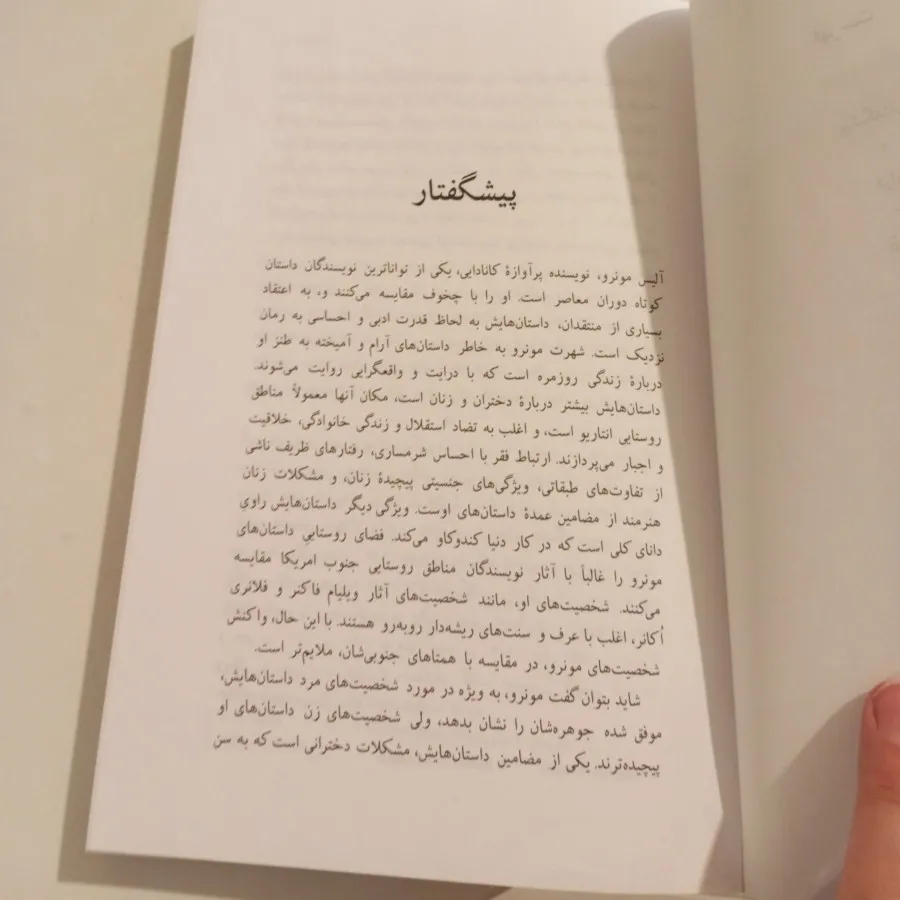 پیشگفتار
آلیس مونرو، نویسنده پرآوازۀ کانادایی، یکی از تواناترین نویسندگان داستان
کوتاه دوران معاصر است. او را با چخوف مقایسه می‌کنند و، به اعتقاد
بسیاری از منتقدان، داستان‌هایش به لحاظ قدرت ادبی و احساسی به رمان
نزدیک است. شهرت مونرو به خاطر داستان‌های آرام و آمیخته به طنز او
دربارۀ زندگی روزمره است که با درایت و واقعگرایی روایت می‌شوند.
داستان‌هایش بیشتر دربارۀ دختران و زنان است، مکان آنها معمولاً مناطق
روستایی انتاریو است، و اغلب به تضاد استقلال و زندگی خانوادگی، خلاقیت
و اجبار می‌پردازند. ارتباط فقر با احساس شرمساری، رفتارهای ظریف ناشی
از تفاوت‌های طبقاتی، ویژگی‌های جنسیتی پیچیدۀ زنان، و مشکلات زنان
هنرمند از مضامین عمدۀ داستان‌های اوست. ویژگی دیگر داستان‌هایش راویِ
دانای کلی است که در کار دنیا کندوکاو می‌کند. فضای روستاییِ داستان‌های
مونرو را غالباً با آثار نویسندگان مناطق روستایی جنوب امریکا مقایسه
می‌کنند. شخصیت‌های او، مانند شخصیت‌های آثار ویلیام فاکنر و فلانری
اُکانر، اغلب با عرف و سنت‌های ریشه‌دار روبه‌رو هستند. با این حال، واکنش
شخصیت‌های مونرو، در مقایسه با همتاهای جنوبی‌شان، ملایم‌تر است.
شاید بتوان گفت مونرو، به ویژه در مورد شخصیت‌های مرد داستان‌هایش،
موفق شده جوهره‌شان را نشان بدهد، ولی شخصیت‌های زن داستان‌های او
پیچیده‌ترند. یکی از مضامین داستان‌هایش، مشکلات دخترانی است که به سن